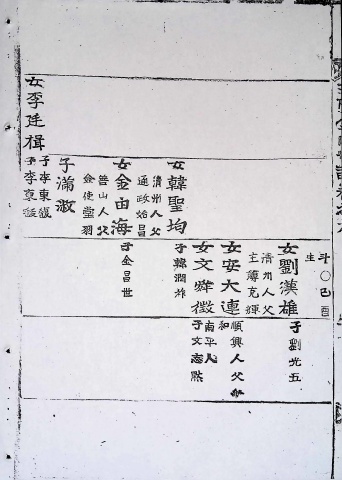 斗〇己酉
生
女劉漢雄
清州人父
主簿克輝
子劉光五
女安大連
順興人父
和
女文舜徵
南平人
子文志
女韓聖均
清州人父
通政始昌
子韓潤
女金由海
善山人父
金使聖羽
子金昌世
子滿淑
女李廷楫
子李東
子李京